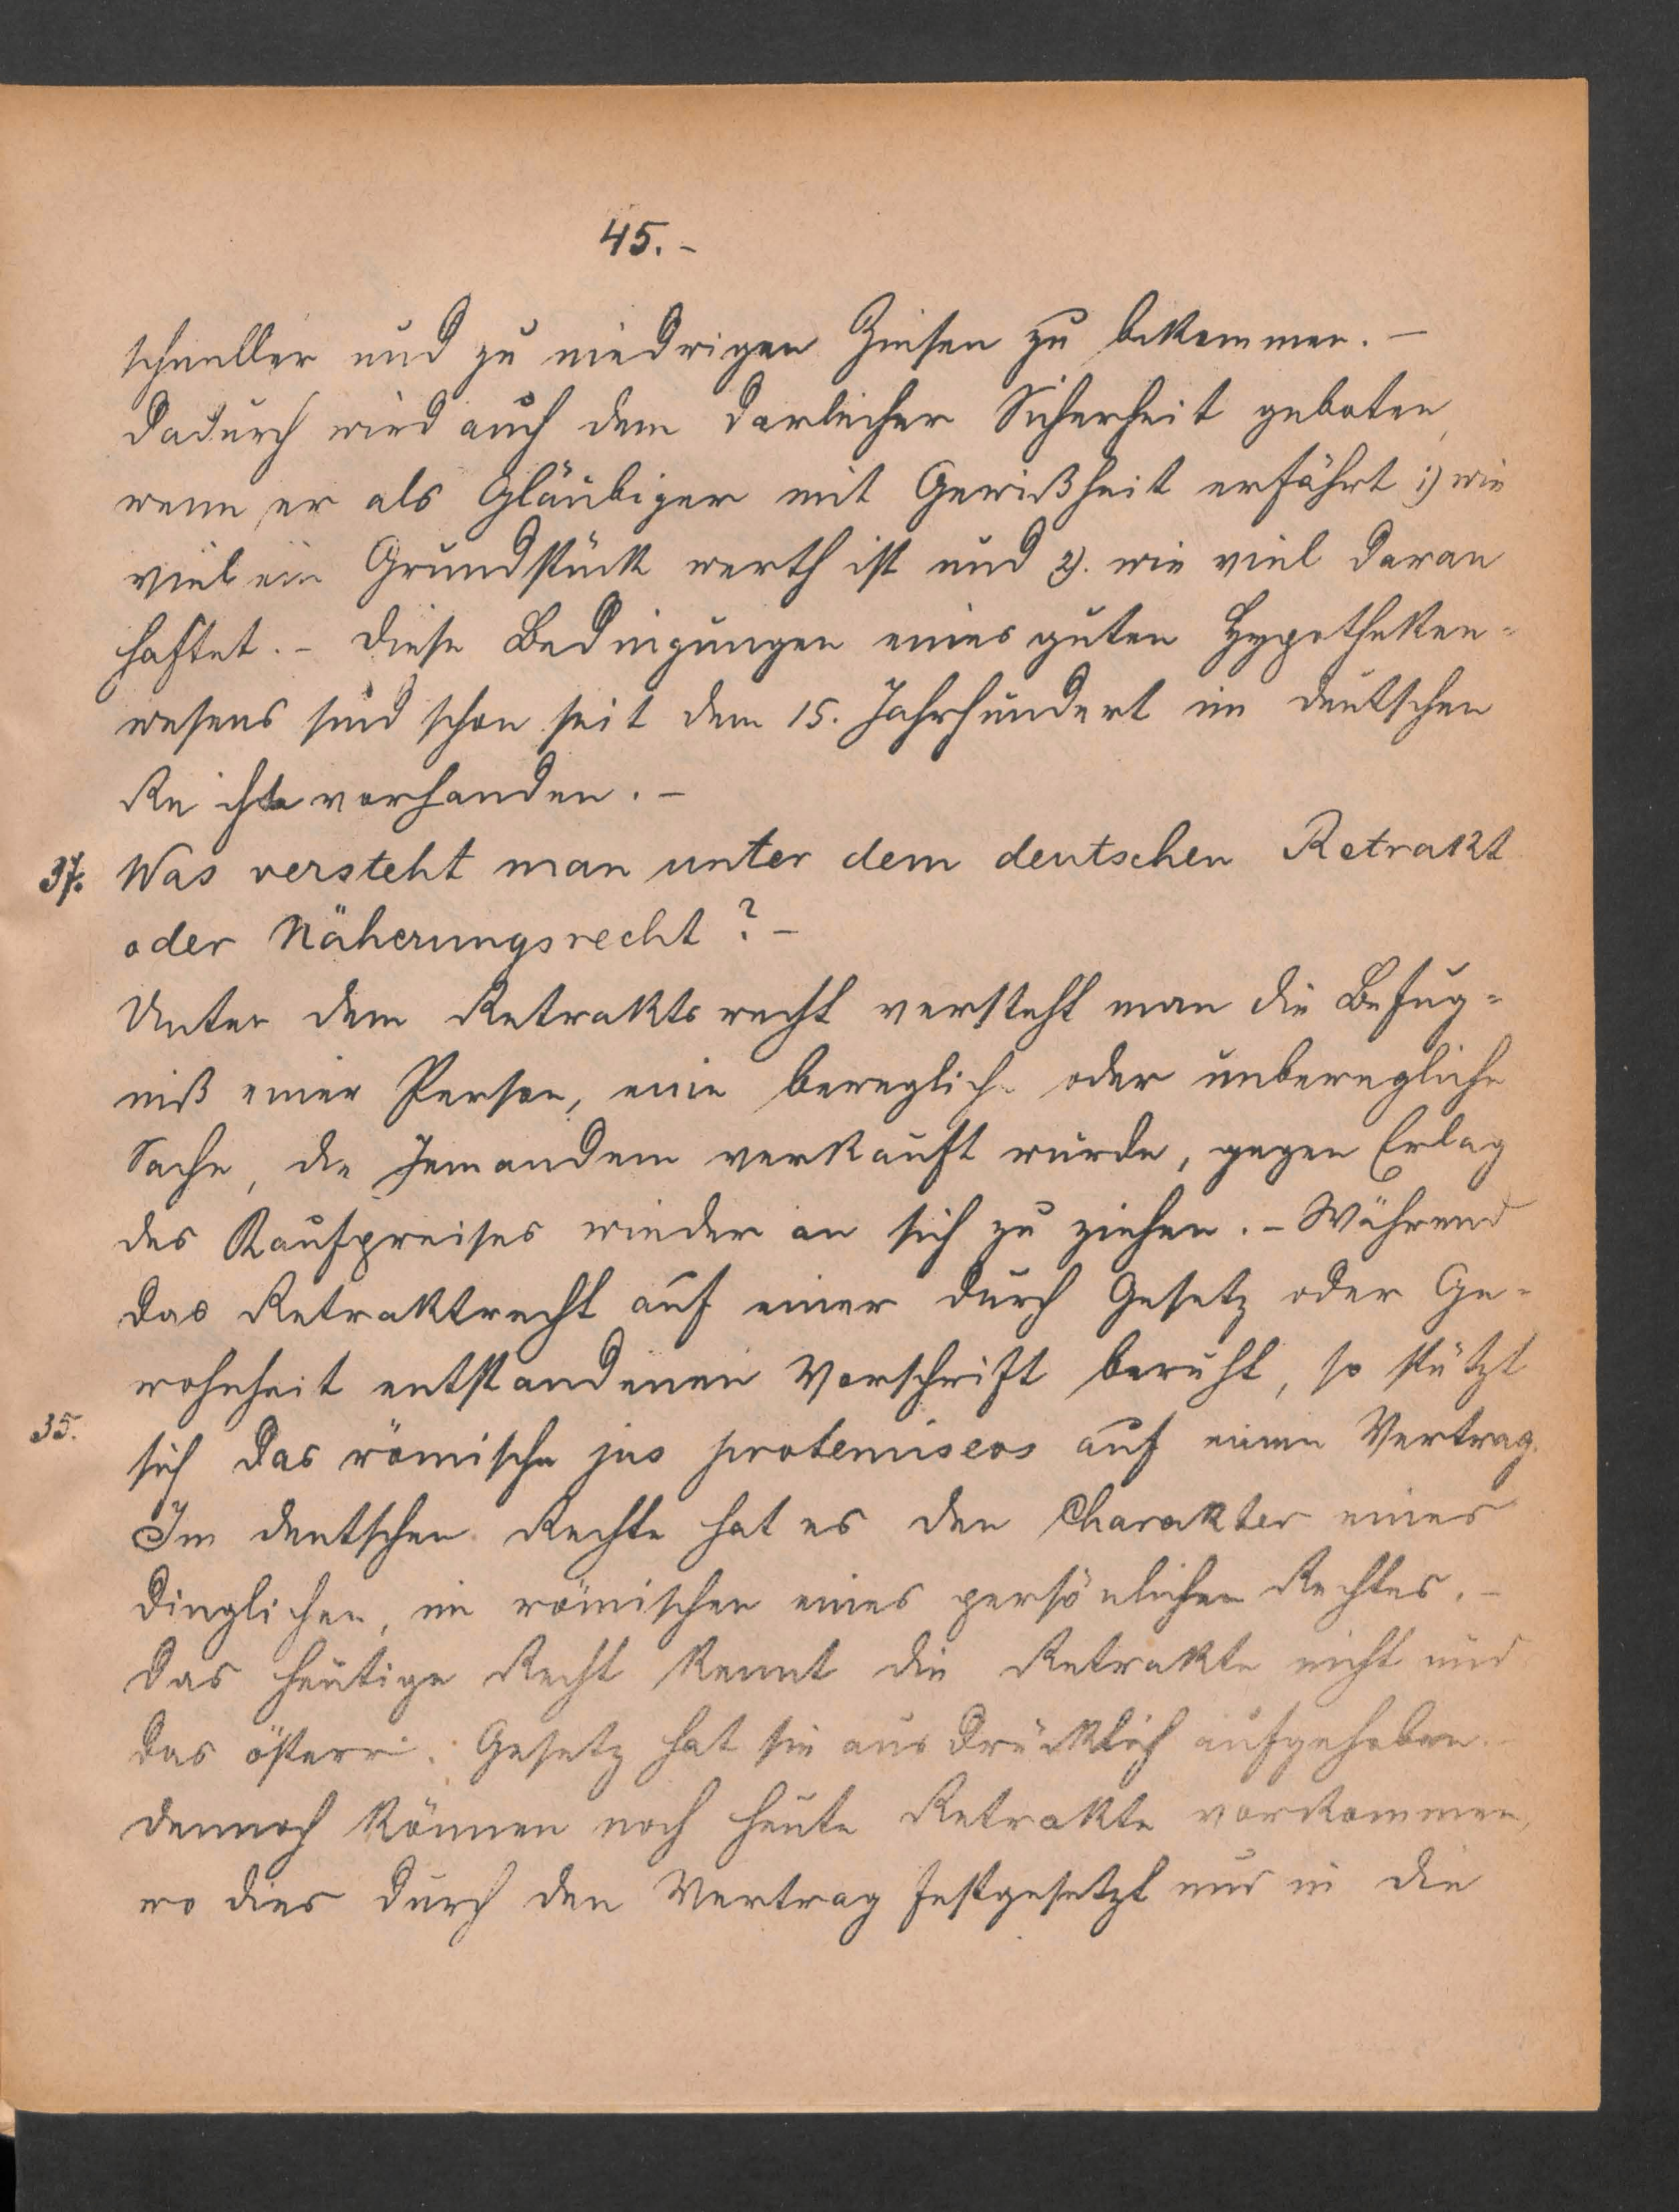 45. -
schneller und zu niedrigen Zinsen zu bekommen. -
Dadurch wird auch dem Darleiher Sicherheit geboten,
wenn er als Gläubiger mit Gewißheit erfährt 1) wie
viel ein Grundstück werth ist und 2). wie viel daran
haftet. - Diese Bedingungen eines guten Hypotheken-
wesens sind schon seit dem 15. Jahrhundert im deutschen
Reichte vorhanden. -
37. Was versteht man unter dem deutschen Retrakt
oder Näherungsrecht? -
Unter dem Retraktsrecht versteht man die Befug-
niß einer Person, eine bewegliche oder unbewegliche
Sache, die Jemandem verkauft wurde, gegen Erlag
des Kaufpreises wieder an sich zu ziehen. - Während
das Retraktrecht auf einer durch Gesetz oder Ge-
wohnheit entstandenen Vorschrift beruht, so stützt
35. sich das römische jus protemiseos auf einen Vertrag.
Im deutschen Rechte hat es den Charakter eines
dinglichen, im römischen eines persönlichen Rechtes. -
Das heutige Recht kennt die Retrakte nicht und
das österr. Gesetz hat sie ausdrücklich aufgehoben. -
Dennoch können noch heute Retrakte vorkommen,
wo dies durch den Vertrag festgesetzt und in die